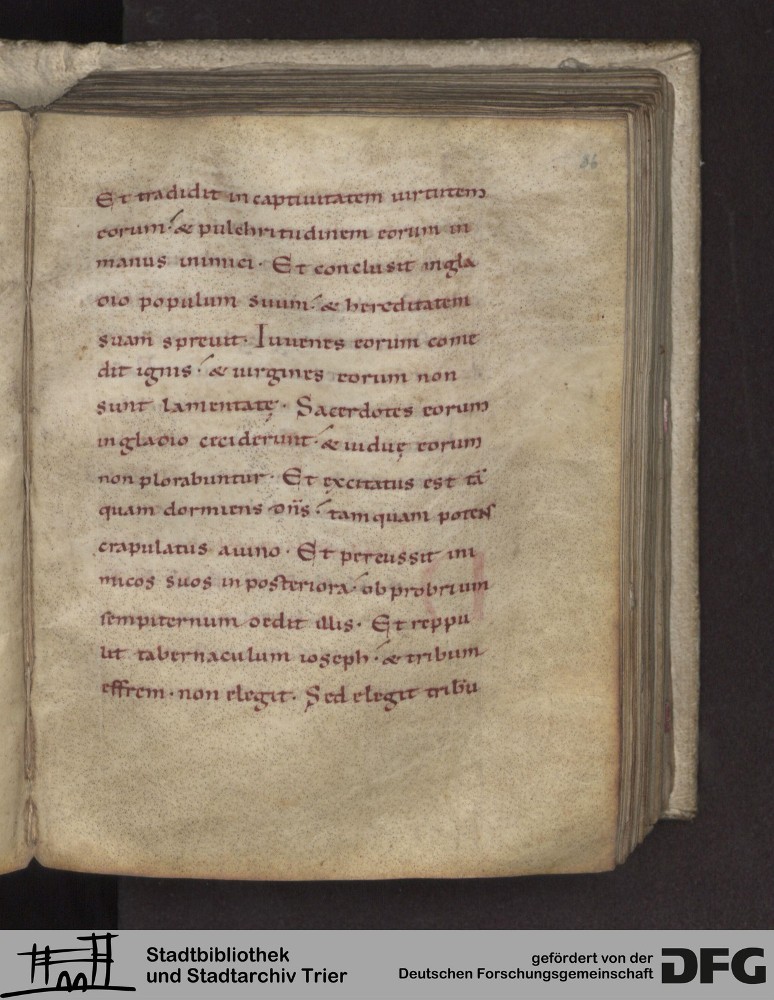 86
Et tradidit in captiuitatem uirtutem
eorum· & pulchritudinem eorum in
manus inimici· Et conclusit in gla
dio populum suum· & hereditatem
suam spreuit· Iuuenes eorum come
dit ignis· & uirgines eorum non
sunt lamentatę· Sacerdotes eorum
in gladio ceciderunt· & uiduę eorum
non plorabuntur· Et excitatus est tā
quam dormiens dn̄s· tamquam potens
crapulatus a uino· Et percussit ini
micos suos in posteriora· obprobrium
sempiternum dedit illis· Et reppu
lit tabernaculum ioseph· & tribum
effrem· non elegit· Sed elegit tribū
Stadtbibliothek
und Stadtarchiv Trier
gefördert von der
Deutschen Forschungsgemeinschaft
DFG